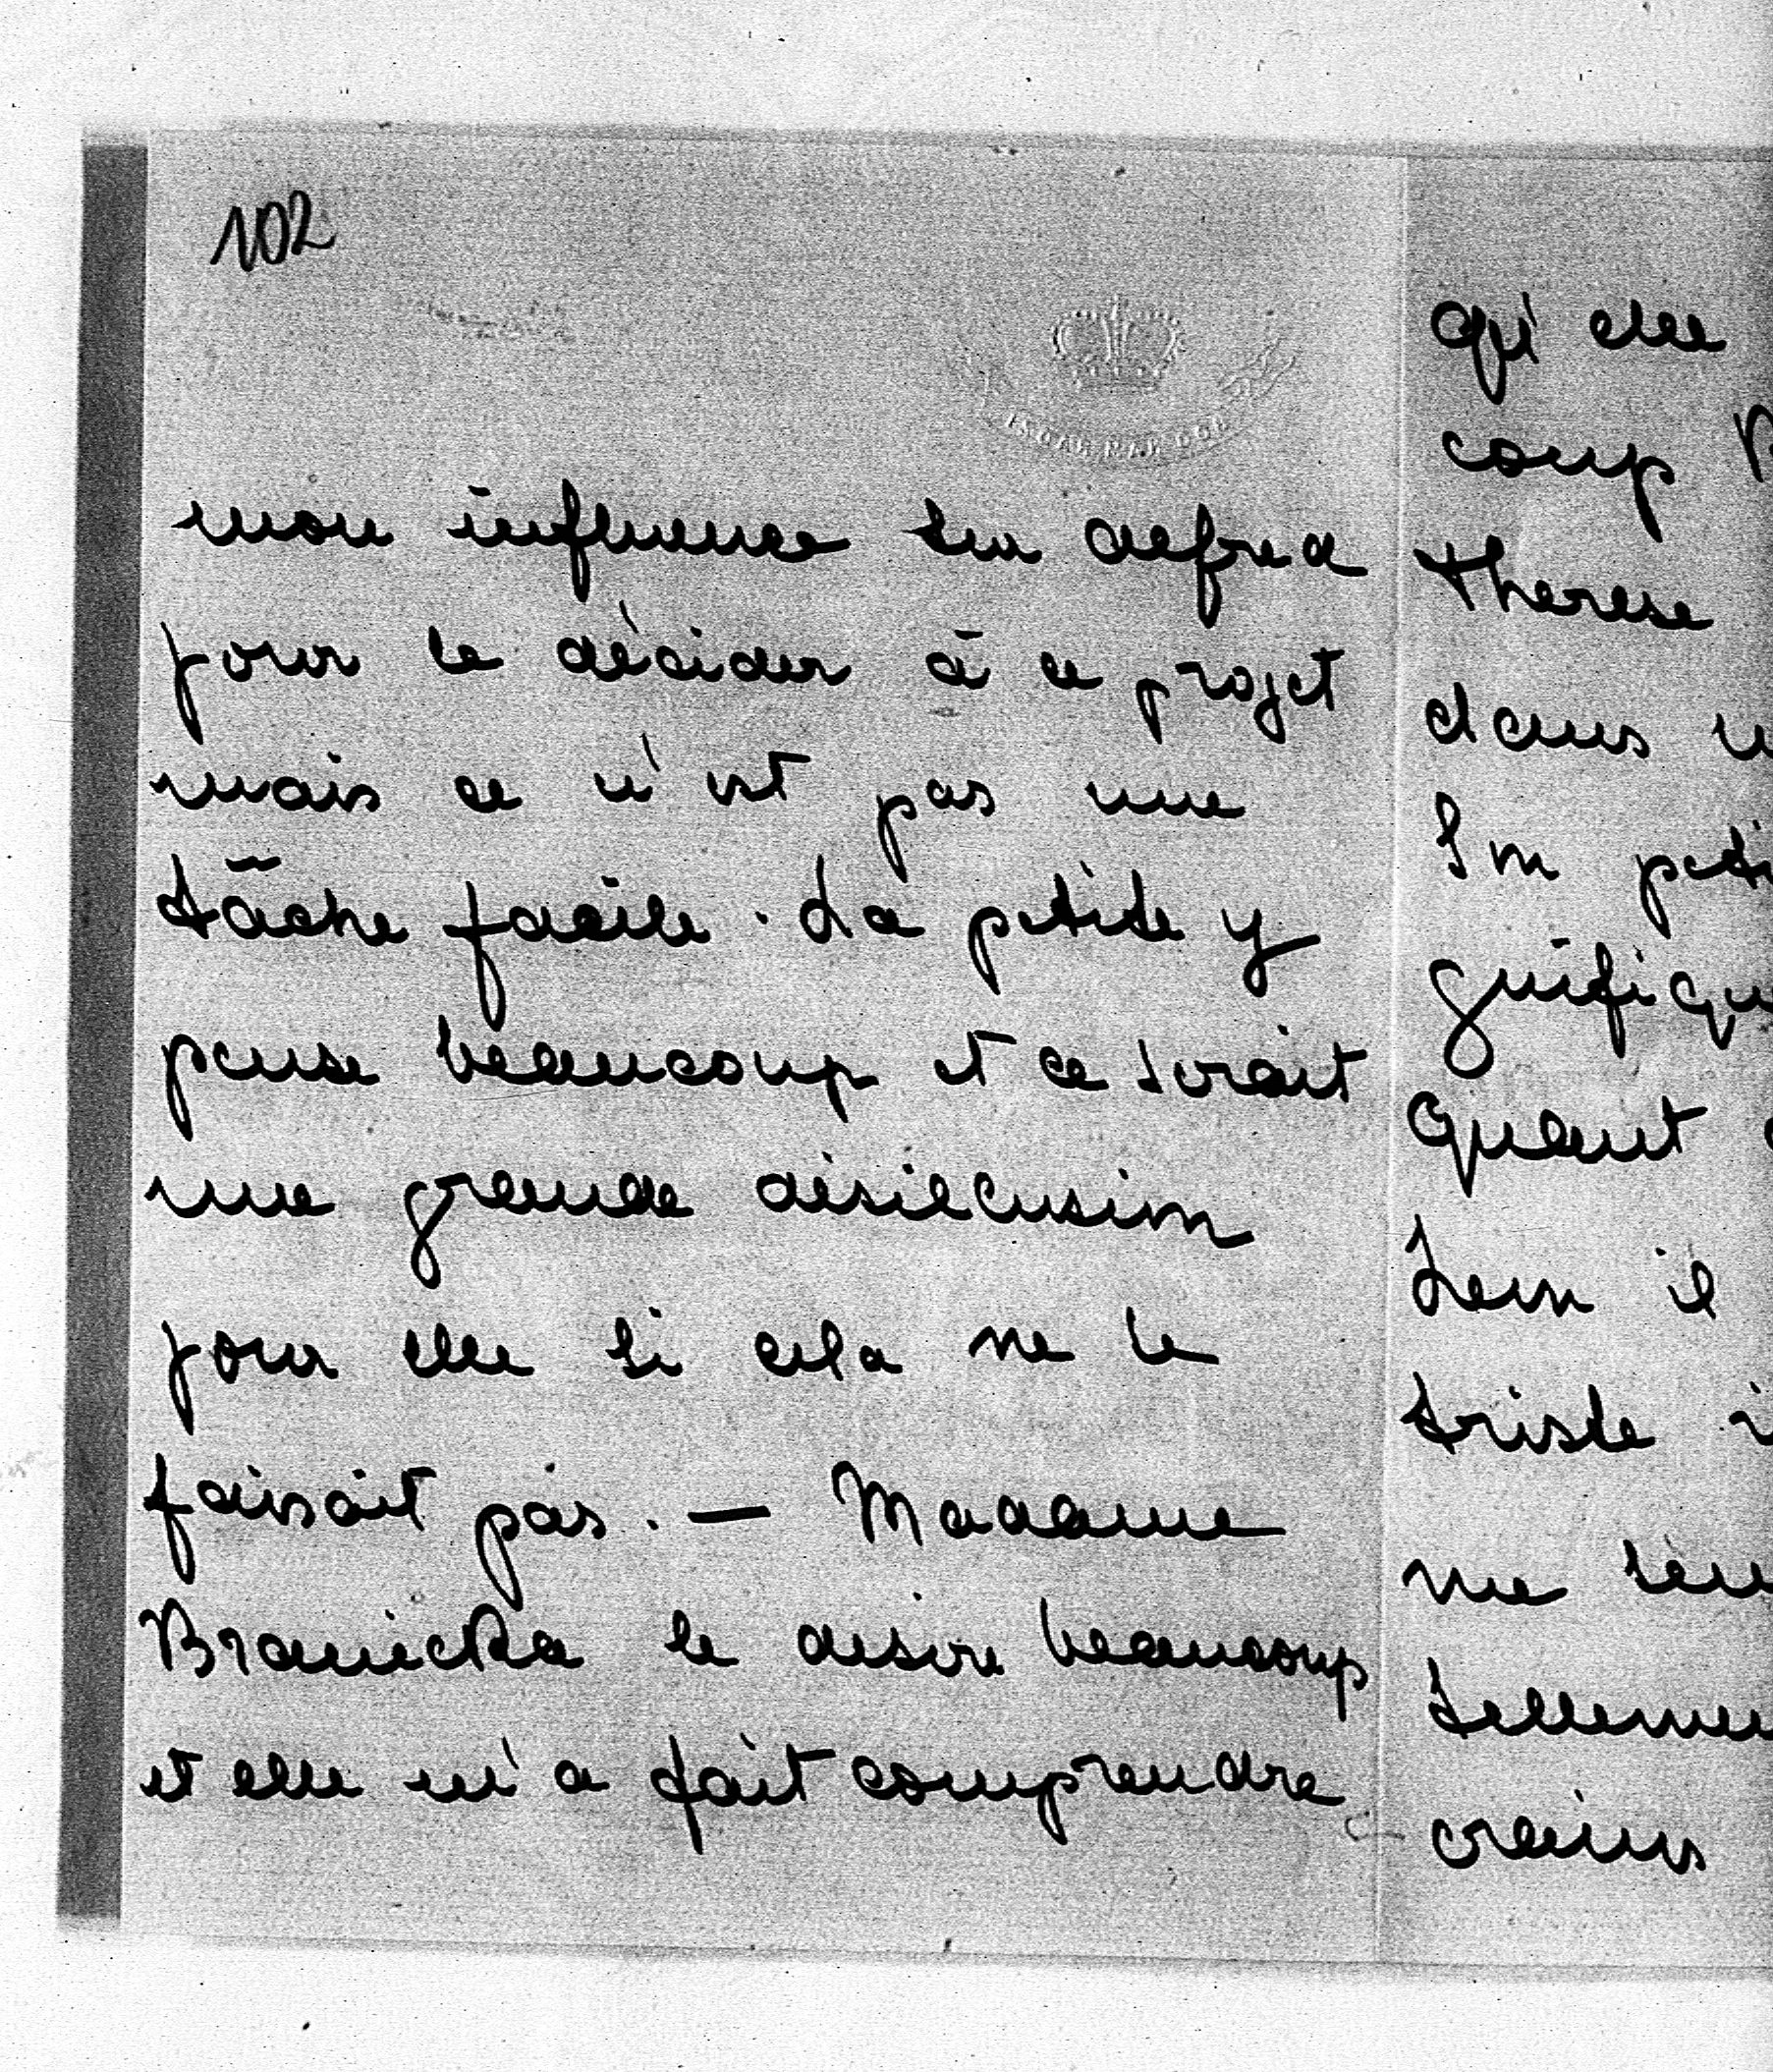 102
mon influence sur Alfred
pour le décider à ce projet
mais ce n'est pas une
tâche facile. La petite y
pense beaucoup et ce serait
une grande désillusion
pour elle si cela ne se
faisait pas. — Madame
Branicka le désire beaucoup
et elle m'a fait comprendre
qu'elle
coup
Therese
dans
Son peti
gnifiqu
Quant
Leur il
triste
me sem
tellemen
crains